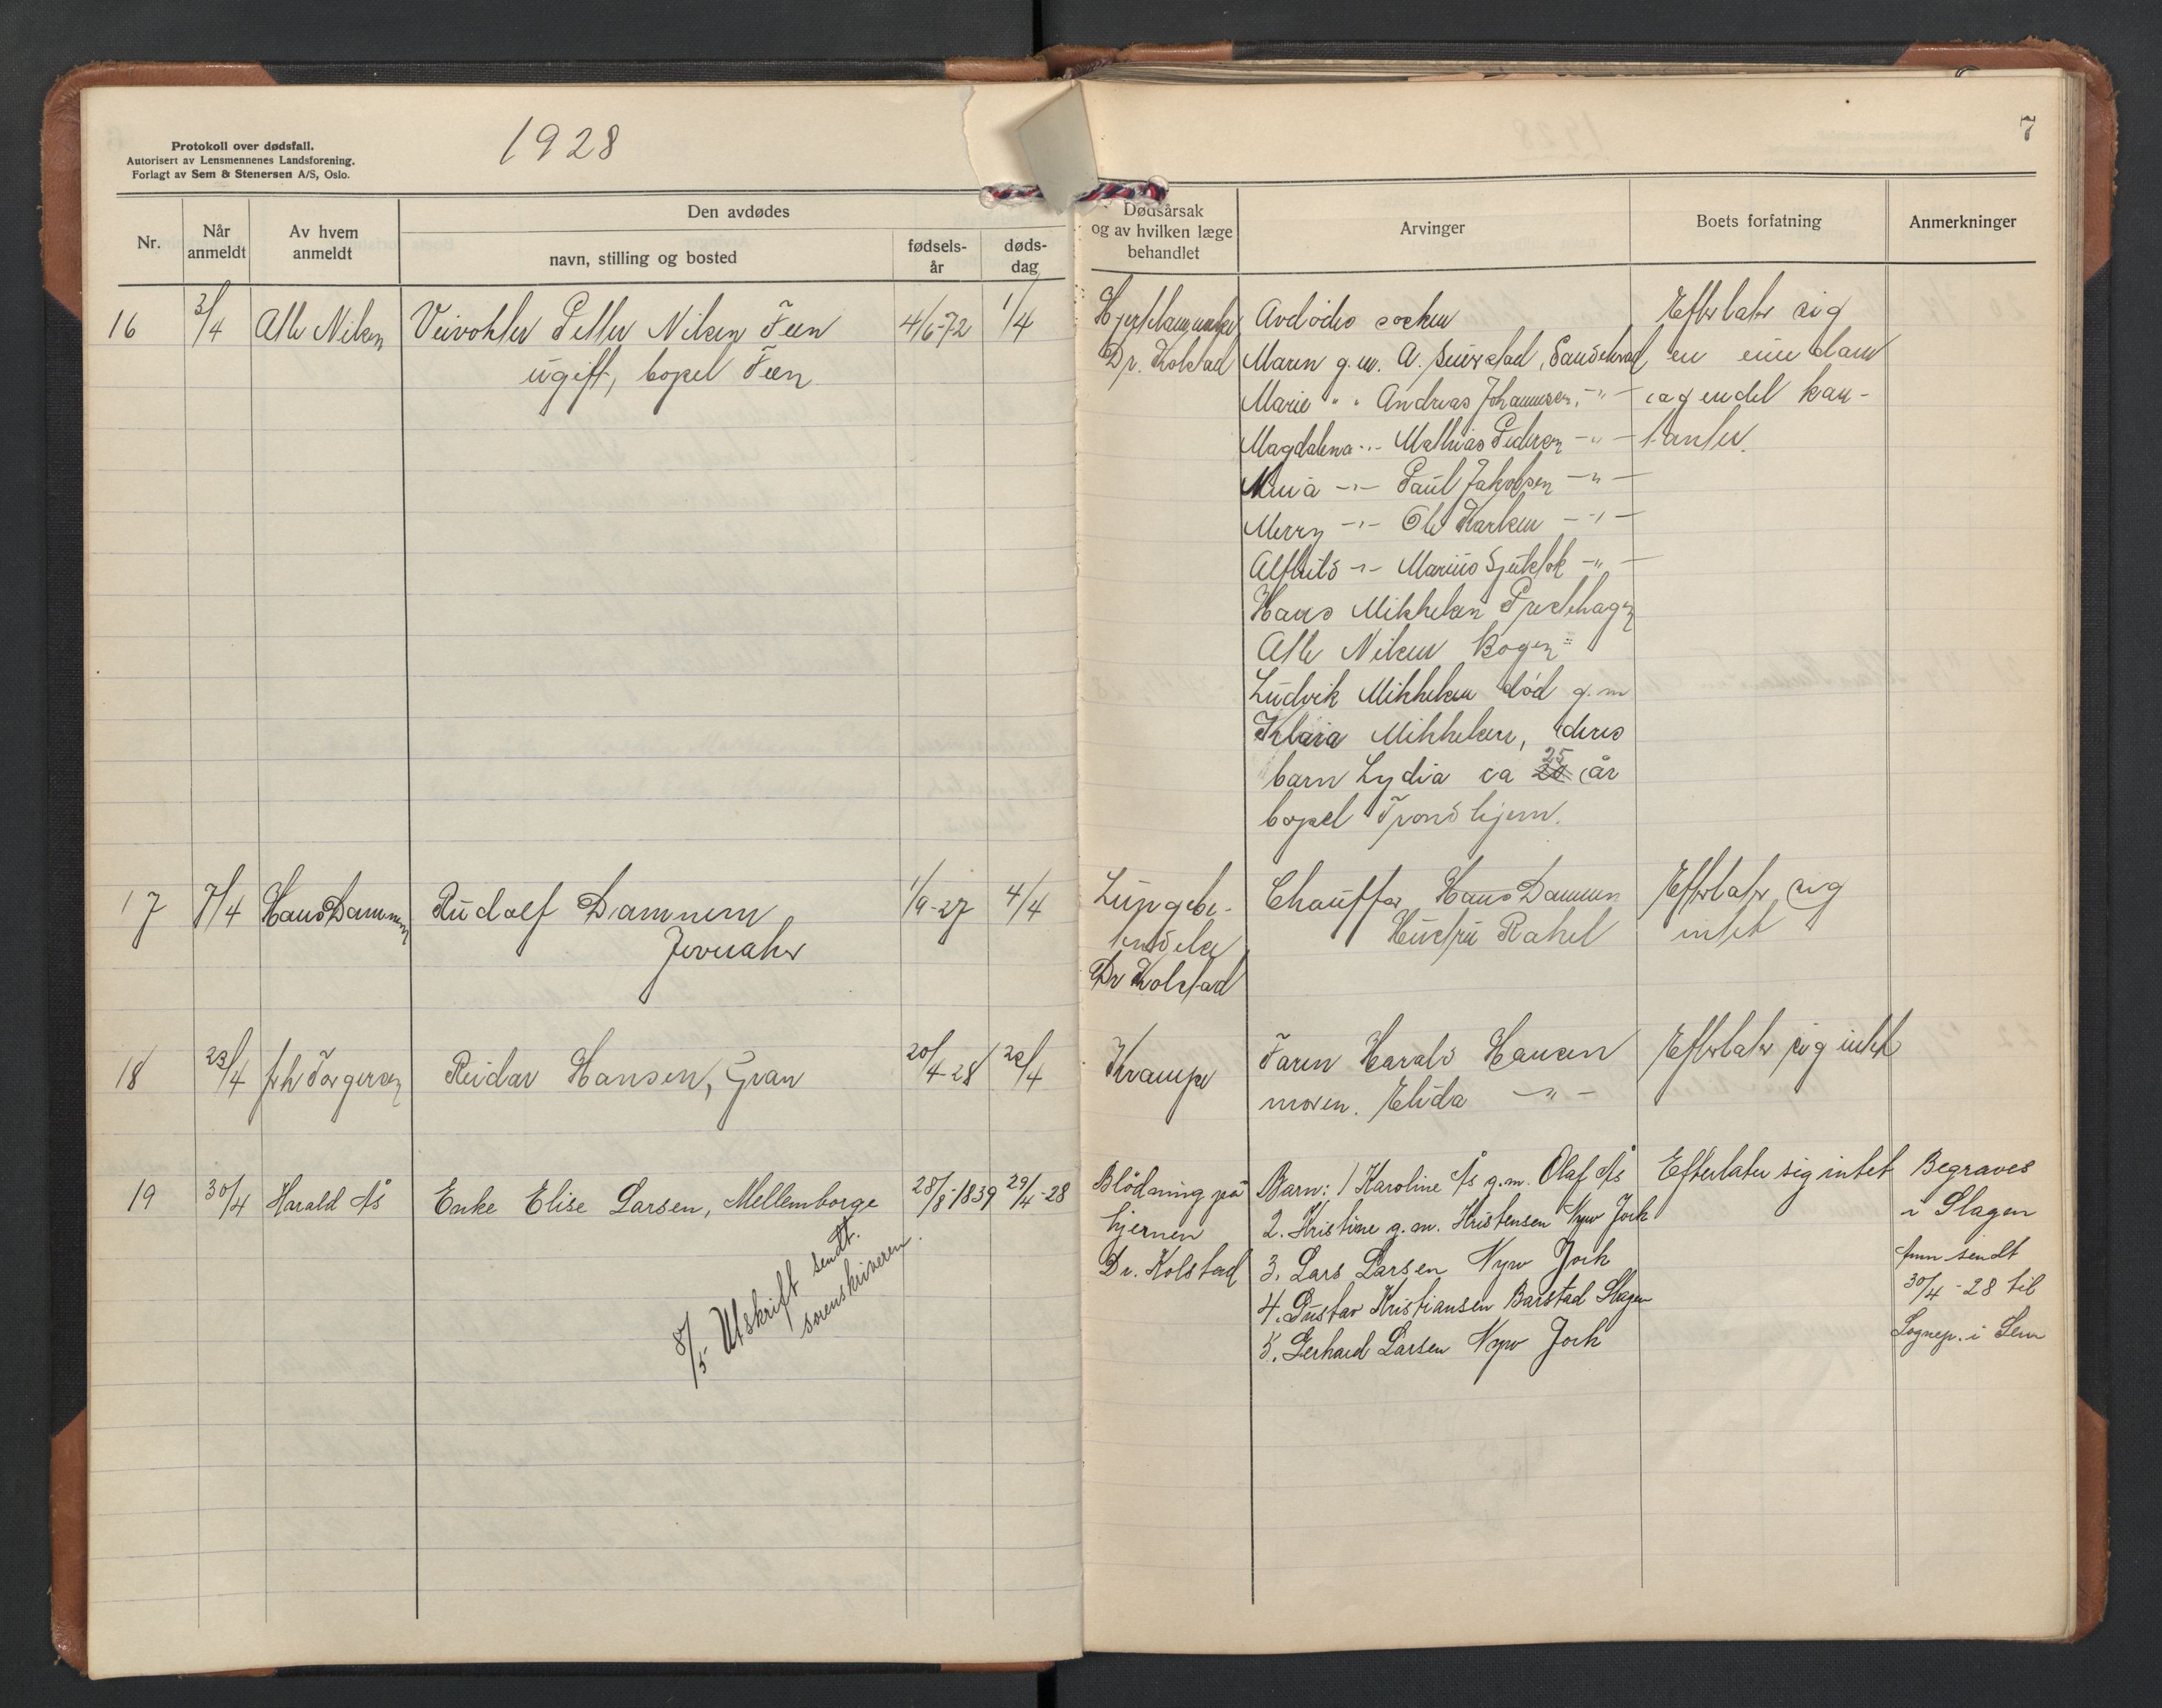 Protokoll over dødsfall.
Autorisert av Lensmennenes Landsforening.
Forlagt av Sem & Stenersen A/S, Oslo.
1928
7
Nr.
Når anmeldt
Av hvem anmeldt
Den avdødes
navn, stilling og bosted
fødsels-år
døds-dag
Dødsårsak og av hvilken læge behandlet
Arvinger
Boets forfatning
Anmerkninger
16 3/4 Atle Nilsen Petter Nilsen Feen 4/6-72 1/4
ugift, bopel Feen
Dr. Kolstad
Avdødes søsken
Maren g.m. A.
Marie " " Andreas Johannesen, -"-
Magdalena -"- Mathias Pedersen -"-
-"- Paul Jakobsen -"-
Merry -"- Ole Karlsen -"-
-"- Marius -"-
Hans Mikkelsen Prestehagen
Atle Nilsen Bogen
Ludvik Mikkelsen død g.m
Klara Mikkelsen, deres
barn Lydia ca 25 år
bopel Trondhjem.
Efterlater sig
en eiendom
og endel kon-
tanter.
17 7/4 Hans Dammen Rudolf Dammen 1/9-27 4/4
Jernaker
Lungebe-
tendelse
Dr Kolstad
Chauffør Hans Dammen
Hustru Rakel
Efterlater sig
intet
18 23/4 Torgersen Reidar Hansen, Gran 20/4-28 22/4
Krampe
Faren Harald Hansen
moren. Elida -"-
Efterlater sig intet
19 30/4 Harald Ås Enke Elise Larsen, Mellemborge 28/8-1839 29/4-28
8/5 Utskrift sendt.
sorenskriveren.
Blödning på
hjernen
Dr. Kolstad
Barn: 1 Karoline Ås g.m. Olaf Ås
2. Kristine g.m. Kristensen Nyw Jork
3. Lars Larsen Nyw Jork
4. Gustav Kristiansen Barstad Slagen
5. Gerhard Larsen Nyw Jork
Efterlater sig intet
Begraves
i Slagen
sendt
30/4-28 til
Sognep. i Sem